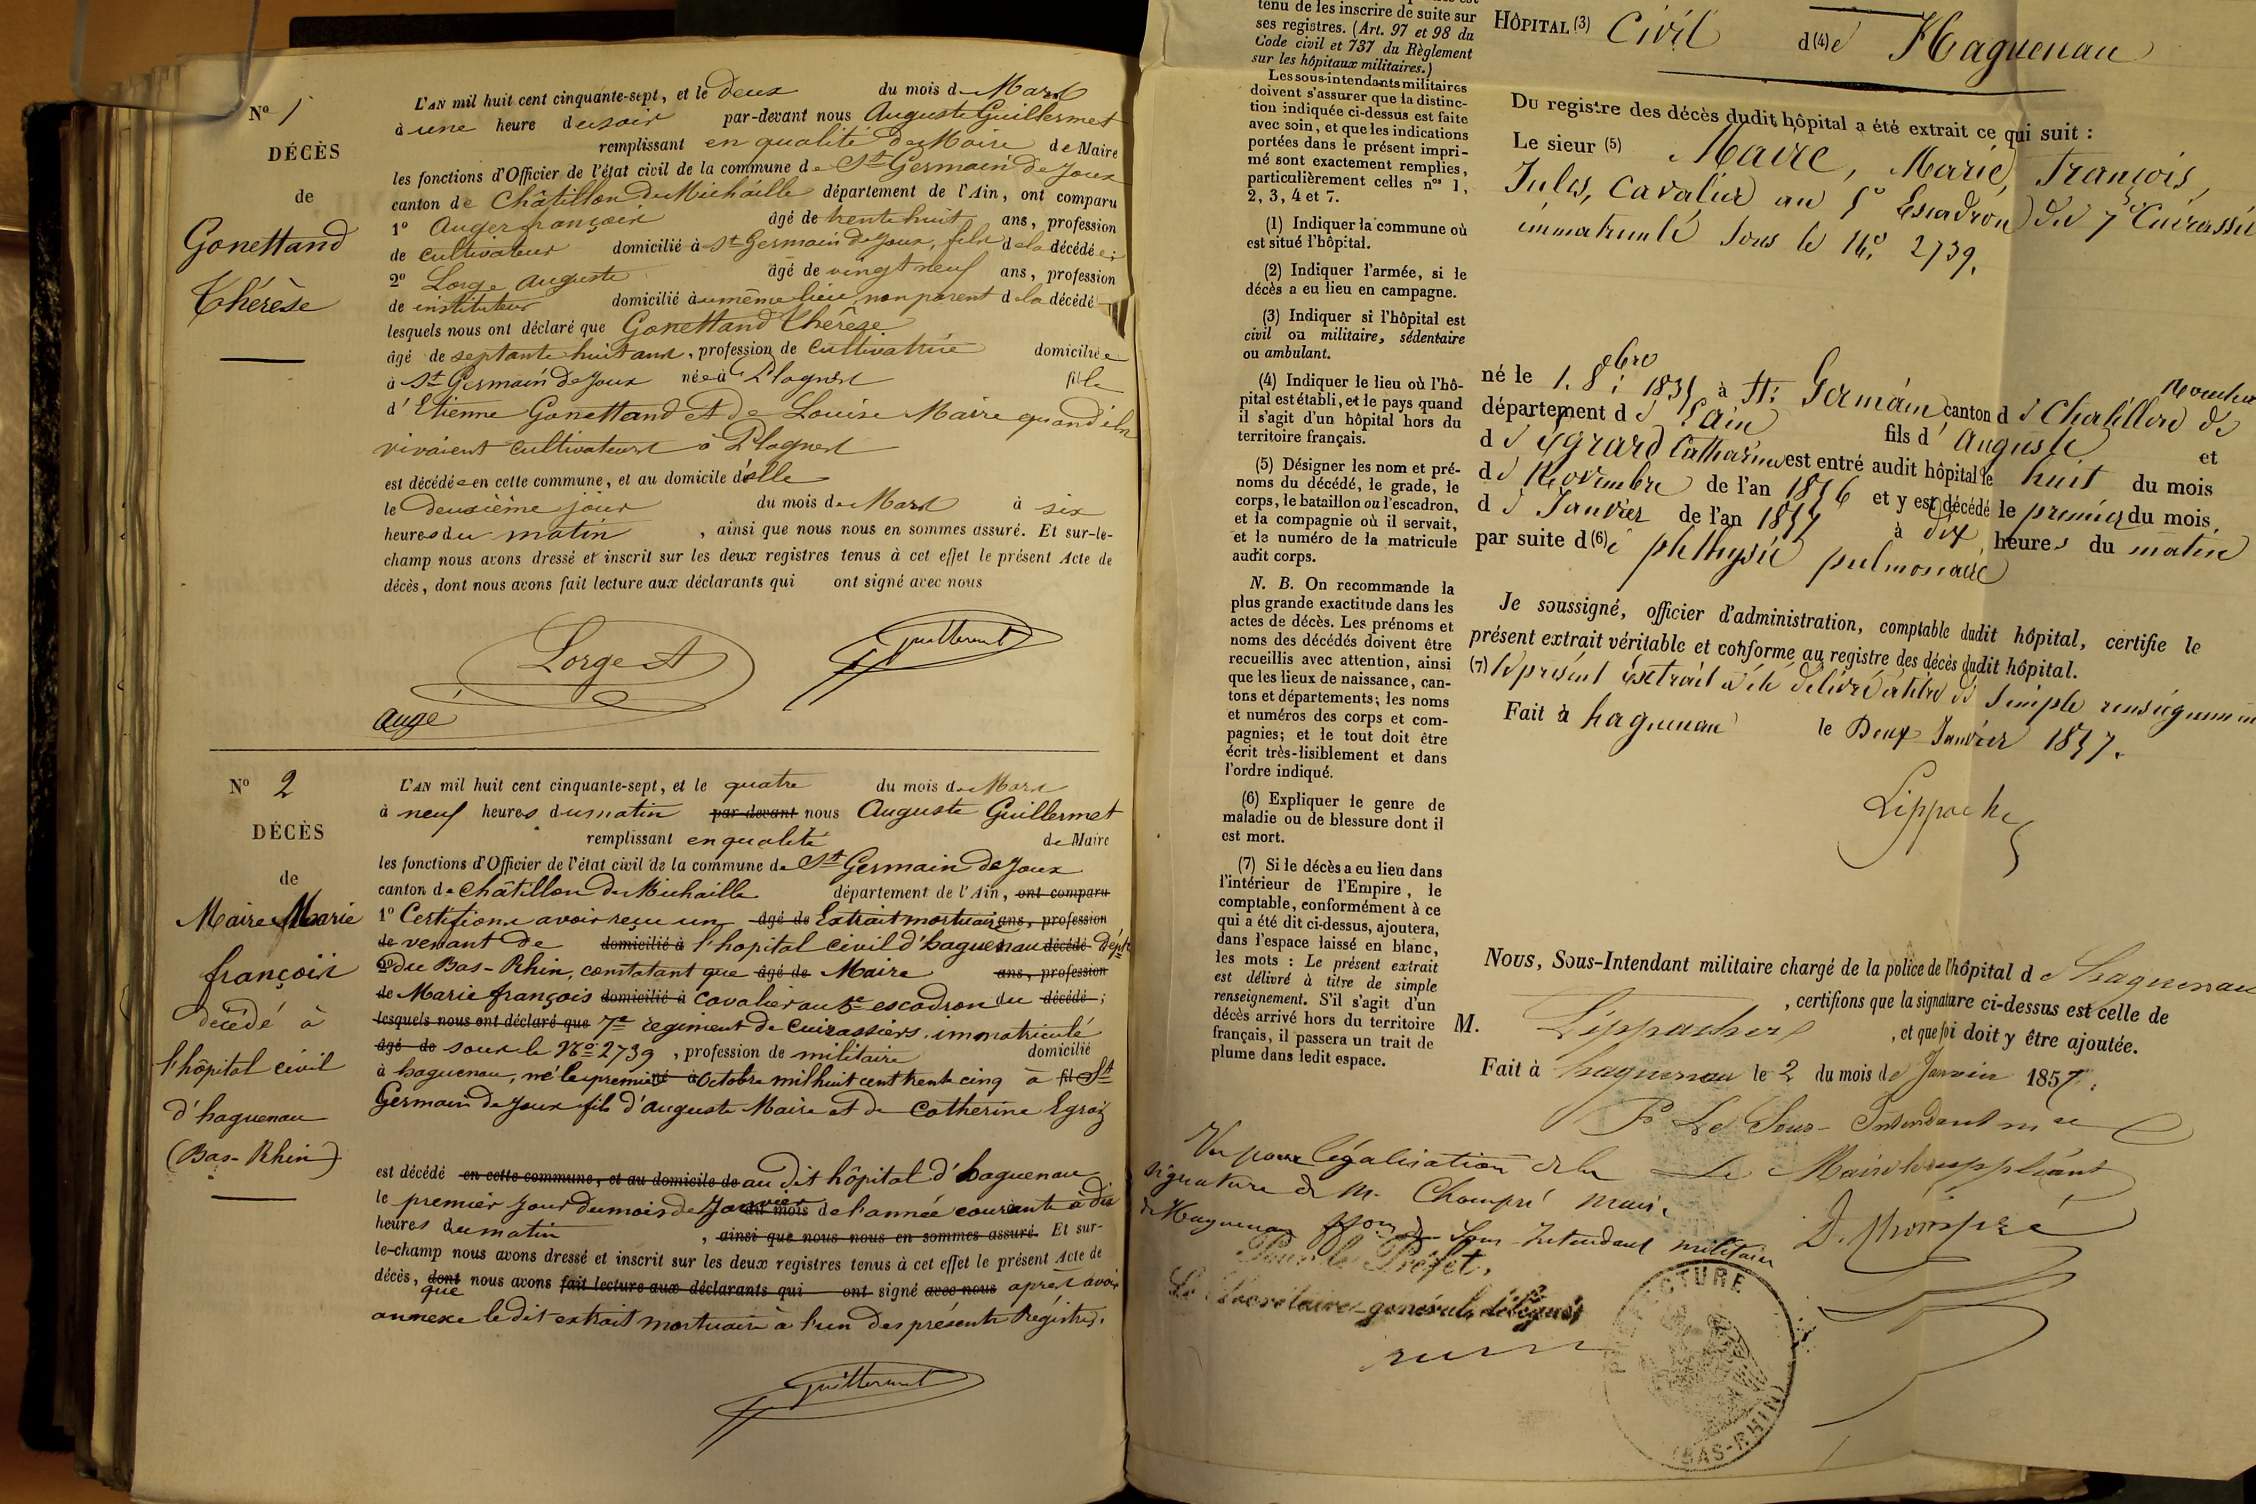 N° 1
DÉCÈS
de
Gonettand
Thérèse
L'AN mil huit cent cinquante-sept, et le deux du mois de Mars
à une heure du soir par-devant nous Auguste Guillermet
remplissant en qualité de Maire de Maire
les fonctions d'Officier de l'état civil de la commune de St Germain de Joux
canton de Châtillon de Michaille département de l'Ain, ont comparu
1° Auger françois âgé de trente huit ans, profession
de cultivateur domicilié à St Germain de Joux, fils de la décédée;
2° Lorge Auguste âgé de vingt neuf ans, profession
de instituteur domicilié au même lieu, non parent de la décédé
lesquels nous ont déclaré que Gonettand Thérèse
âgé de septante huit ans, profession de cultivatrice domiciliée
à St Germain de Joux née à Plagnes fille
d'Etienne Gonettand et de Louise Maire quand ils
vivaient cultivateurs à Plagnes
est décédée en cette commune, et au domicile d'elle
le deuxième jour du mois de Mars à six
heures du matin, ainsi que nous nous en sommes assuré. Et sur-le-
champ nous avons dressé et inscrit sur les deux registres tenus à cet effet le présent Acte de
décès, dont nous avons fait lecture aux déclarants qui ont signé avec nous
Lorge A
Guillermet
Auge
N° 2
DÉCÈS
de
Maire Marie
françois
décédé à
l'hôpital civil
d'haguenau
(Bas-Rhin)
L'AN mil huit cent cinquante-sept, et le quatre du mois de Mars
à neuf heures du matin par-devant nous Auguste Guillermet
remplissant en qualité de Maire
les fonctions d'Officier de l'état civil de la commune de St Germain de Joux
canton de Châtillon de Michaille département de l'Ain, ont comparu
1° Certifions avoir reçu un âgé de Extrait mortuaire ans, profession
de venant de domicilié à l'hopital civil d'haguenau décédé dépt
2° du Bas-Rhin, constatant que âgé de Maire ans, profession
de Marie françois domicilié à cavalier au 5e escadron du décédé;
lesquels nous ont déclaré que 7e régiment de cuirassiers, immatriculé
âgé de sous le N° 2739, profession de militaire domicilié
à haguenau, né le premier né à octobre mil huit cent trente cinq à fil St
Germain de Joux fils d'auguste Maire et de Catherine Egraz
est décédé en cette commune, et au domicile de au dit hôpital d'haguenau
le premier jour du mois de Janvier du mois de l'année courante à dix
heures du matin, ainsi que nous nous en sommes assuré. Et sur-
le-champ nous avons dressé et inscrit sur les deux registres tenus à cet effet le présent Acte de
décès, dont que nous avons fait lecture aux déclarants qui ont signé avec nous après avoir
annexé le dit extrait mortuaire à l'un des présents Régistres.
Guillermet
tenu de les inscrire de suite sur
ses registres. (Art. 97 et 98 du
Code civil et 737 du Règlement
sur les hôpitaux militaires.)
Les sous-intendants militaires
doivent s'assurer que la distinc-
tion indiquée ci-dessus est faite
avec soin, et que les indications
portées dans le présent impri-
mé sont exactement remplies,
particulièrement celles nos 1,
2, 3, 4 et 7.
(1) Indiquer la commune où
est situé l'hôpital.
(2) Indiquer l'armée, si le
décès a eu lieu en campagne.
(3) Indiquer si l'hôpital est
civil ou militaire, sédentaire
ou ambulant.
(4) Indiquer le lieu où l'hô-
pital est établi, et le pays quand
il s'agit d'un hôpital hors du
territoire français.
(5) Désigner les nom et pré-
noms du décédé, le grade, le
corps, le bataillon ou l'escadron,
et la compagnie où il servait,
et le numéro de la matricule
audit corps.
N. B. On recommande la
plus grande exactitude dans les
actes de décès. Les prénoms et
noms des décédés doivent être
recueillis avec attention, ainsi
que les lieux de naissance, can-
tons et départements; les noms
et numéros des corps et com-
pagnies; et le tout doit être
écrit très-lisiblement et dans
l'ordre indiqué.
(6) Expliquer le genre de
maladie ou de blessure dont il
est mort.
(7) Si le décès a eu lieu dans
l'intérieur de l'Empire, le
comptable, conformément à ce
qui a été dit ci-dessus, ajoutera,
dans l'espace laissé en blanc,
les mots : Le présent extrait
est délivré à titre de simple
renseignement. S'il s'agit d'un
décès arrivé hors du territoire
français, il passera un trait de
plume dans ledit espace.
HÔPITAL (3) Civil d(4)e Haguenau
Du registre des décès dudit hôpital a été extrait ce qui suit :
Le sieur (5) Maire, Marie, François,
Jules, cavalier au 5e Escadron du 7e Cuirassi
immatriculé sous le No. 2739.
né le 1. 8bre 1835 à St. Germain canton de Chatillon de
département de l'ain fils d'Auguste et
de Egrard Catharine est entré audit hôpital le huit du mois
de Novembre de l'an 1856 et y est décédé le premier du mois
de Janvier de l'an 1857 à dix heures du matin
par suite d(6)e phthysie pulmonaire
Je soussigné, officier d'administration, comptable dudit hôpital, certifie le
présent extrait véritable et conforme au registre des décès dudit hôpital.
(7) le présent extrait a été délivré à titre de simple renseignement
Fait à haguenau le Deux Janvier 1857.
Lippacher
Nous, Sous-Intendant militaire chargé de la police de l'hôpital de haguenau
, certifions que la signature ci-dessus est celle de
M. Lippacher, et que foi doit y être ajoutée.
Fait à haguenau le 2 du mois de Janvier 1857.
Pr Le Sous-Intendant mre
Le Maire le suppléant
Vu pour légalisation de la
signature de M. Chompré maire
de Haguenau pour le Sous-Intendant militaire
Pour le Préfet,
Le Secrétaire-général délégué
PRÉFECTURE
(BAS-RHIN)